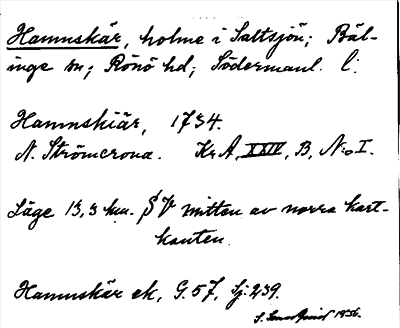 Hamnskär, holme i Saltsjön; Bäl-
inge sn; Rönö hd; Södermanl. l.
Hamnskiär, 1734.
N. Strömcrona. Kr.A, XXIV, B, N:o I.
Läge 13,3 km. SV mitten av norra kart-
kanten.
Hamnskär ek, G. 57, Sj: 239.
1936.